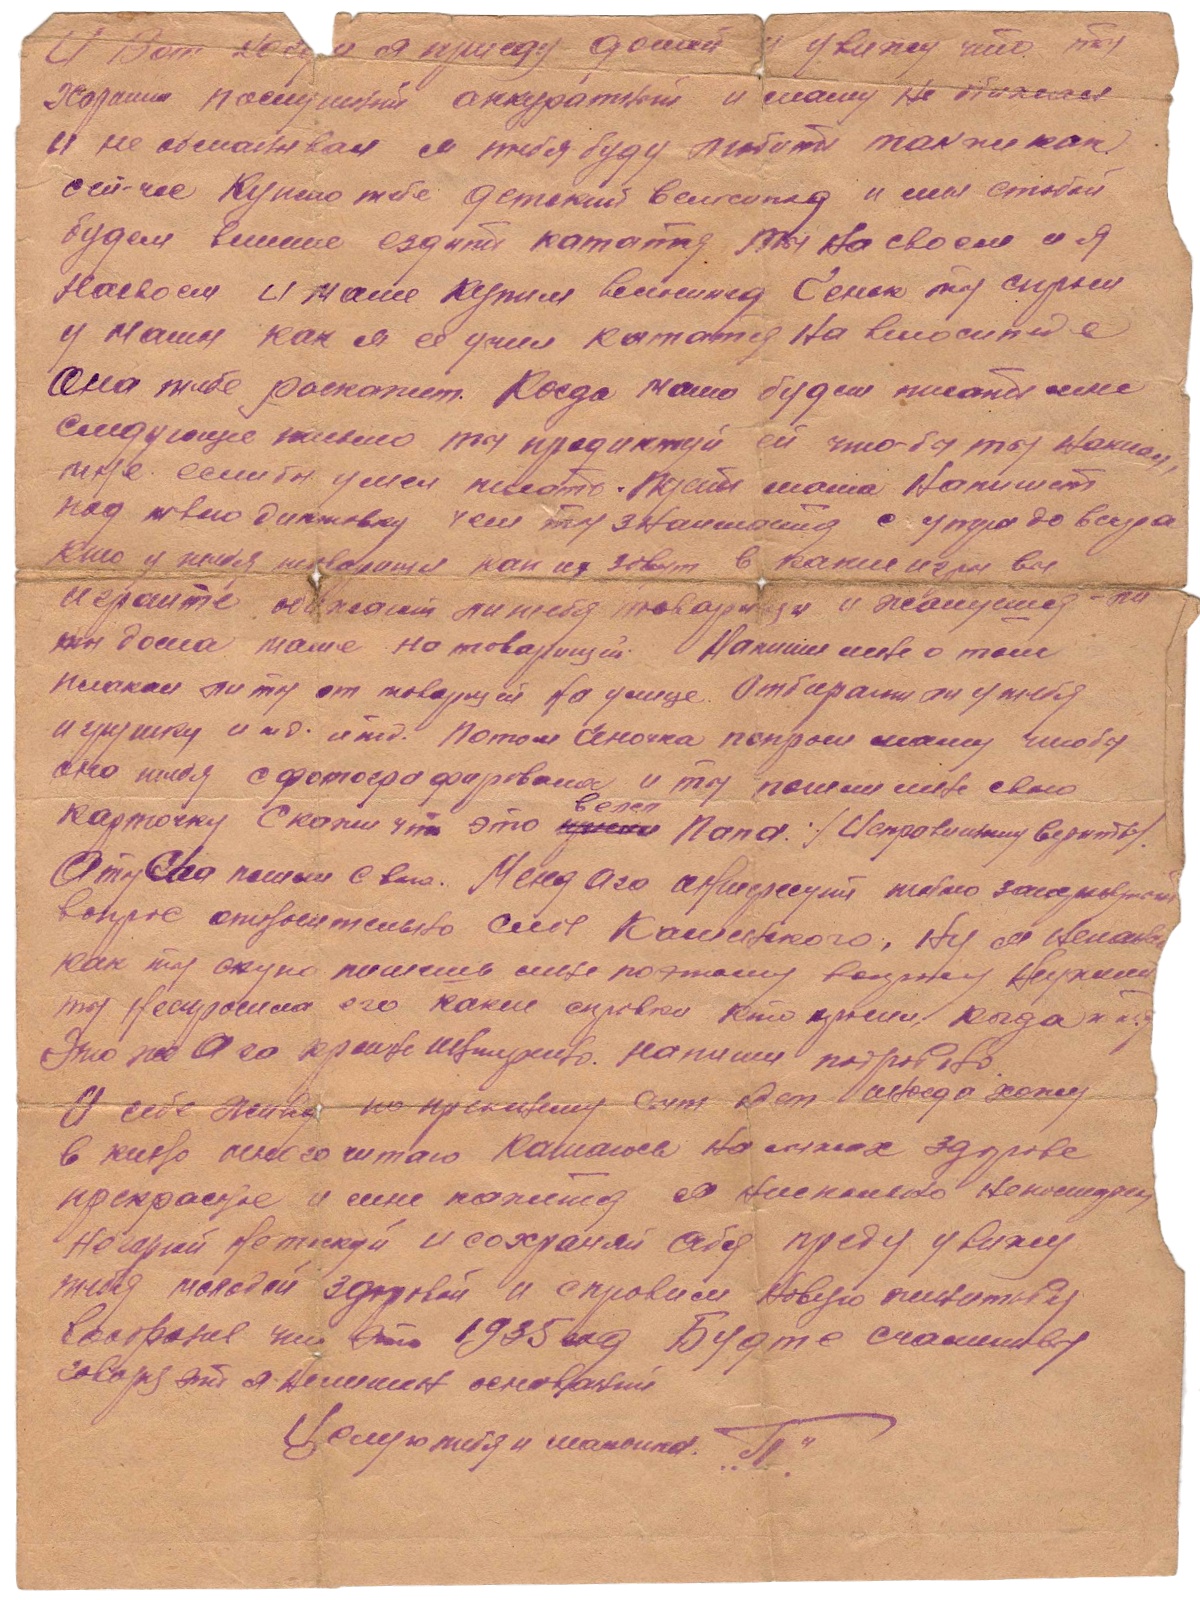 И Вот когда я приеду домой и увижу что ты
Хороший послушный аккуратный и маму не обижал
и не обманывал я тебя буду любить так же как
сей-час Куплю тебе детский велосипед и мы стобой
будем вмесие ездить кататся ты на своем и я
на своем и маме купим велосипед Сенок ты спроси
у мамы как я ее учил кататся на велосипеде
Она тебе роскажет. Когда мама будет писать мне
следующее письмо ты продиктуй ей что-бы ты написал
мне если бы умел писать. Пусть мама напишет
под твою диктовку чем ты занимаешся с утра до вечера
кто у тебя товарищи как их зовут в какие игры вы
играите обижают ли тебя товарищи и жалуешся-ли
ты дома маме на товарищей. Напиши мне о том
плакал ли ты от товарищей на улице. Отбирали ли у тебя
игрушку и т.д. итд. Потом сыночка попроси маму чтобы
она тебя сфотографировала и ты пошли мне свою
карточку Скажи что это велел Папа. :/Исправленному верить/.
А ты Она пошли свою. Меня Аго интересует
вопрос относительно Каминского, Ну и
как ты скупо пишешь мне поэтому вопросу Неужели
ты неспросила его какие справки кто просил, когда и т.д
Это же Аго крайне нужно. напиши подробно.
Я себе живу по прежнему сыт одет иногда хожу
в кино много читаю Катаюсь на лыжах здоровье
прекрасное и мне кажется я нисколько
Негорюй нетоскуй и сохраняй себя приеду увижу
тебя молодой здоровой и справим новую
1935 год Будте счасливы
говорю это я неимеем оснований
Целую тебя и маленька. "П"